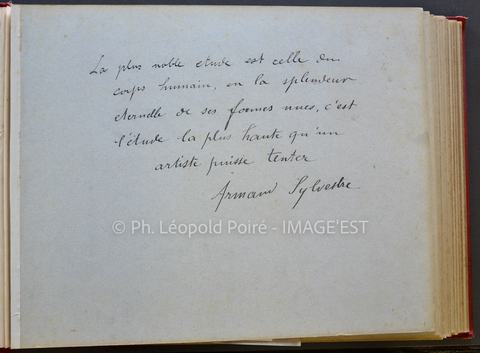 La plus noble etude est celle du
corps humain, en la splendeur
eternelle de ses formes nues, c'est
l'étude la plus haute qu'un
artiste puisse tenter
Armand Sylvestre
© Ph. Léopold Poiré - IMAGE'EST